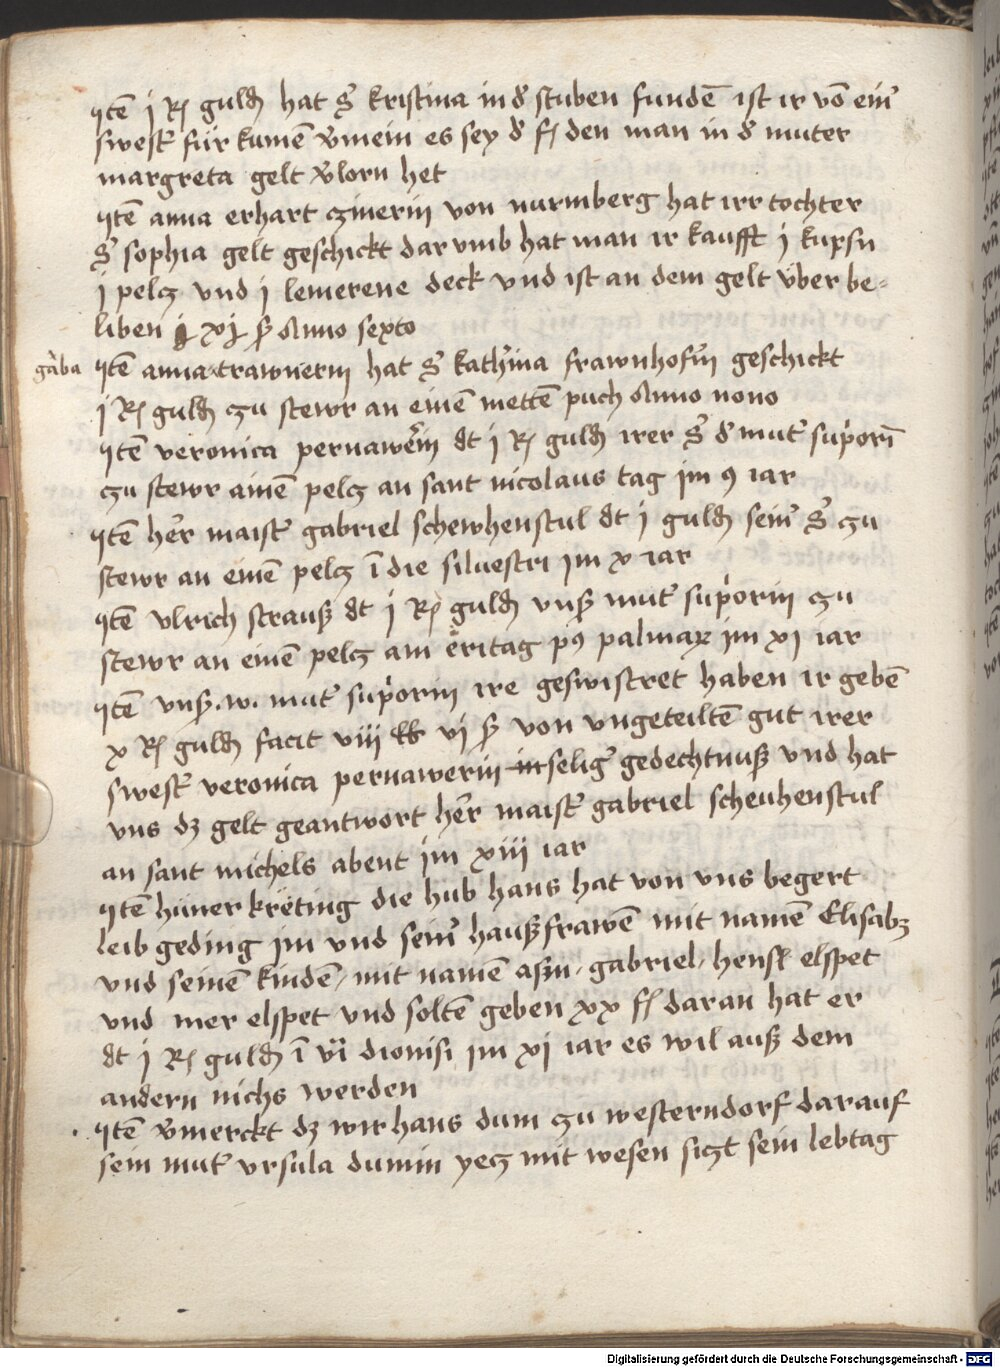 Itē j R guldꝫ hat S kristina in d' stuben fundē ist ir vō ein'
swest' für kumē v'mein es sey d' fl den man in d' muter
margreta gelt v'lorn het
Itē anna erhart zinerin von nurmberg hat irr tochter
S' sophia gelt geschickt dar vmb hat man ir kaufft j kupsn
j pelcz vnd j lemerene deck vnd ist an dem gelt über be-
liben xj ß Anno sexto
gäba Itē anna trawnerin hat S' kath'ina frawnhof'in geschickt
j R guldꝫ zu stewr an einē mettē puch Anno nono
Itē veronica pernawerin dt j R guldꝫ irer S' d' mut' sup'orī
zu stewr ainē pelcz an sant nicolaus tag im 9 iar
Itē he'r maist' gabriel schewhenstul dt j guldꝫ sein' S' zu
stewr an einē pelcz ī die siluestri im x iar
Itē vlrich strauß dt j R guldꝫ vnß mut' sup'orin zu
stewr an einē pelcz am eritag p9 palmaꝝ im xj iar
Itē vnß .w. mut' sup'orin ire geswistret haben ir gebē
x R guldꝫ facit viij lb vj ß von vngeteiltē gut irer
swest' veronica pernawerin in selig' gedechtnuß vnd hat
vns dz gelt geantwort he'r maist' gabriel scheuhenstul
an sant michels abent im xiij iar
Itē hüner kreting die hub hans hat von vns begert
leib geding im vnd sein' haußfrawē mit namē Elisabꝫ
vnd seinē kindē / mit namē asm / gabriel / hensl elspet
vnd mer elspet vnd soltē geben xx fl daran hat er
dt j R guldꝫ ī vi dionisi im xj iar es wil auß dem
andern nichs werden
Itē v'merckt dz wir hans dum zu westerndorf darauf
sein mut' vrsula dumin yecz mit wesen siczt sein lebtag
Digitalisierung gefördert durch die Deutsche Forschungsgemeinschaft - DFG